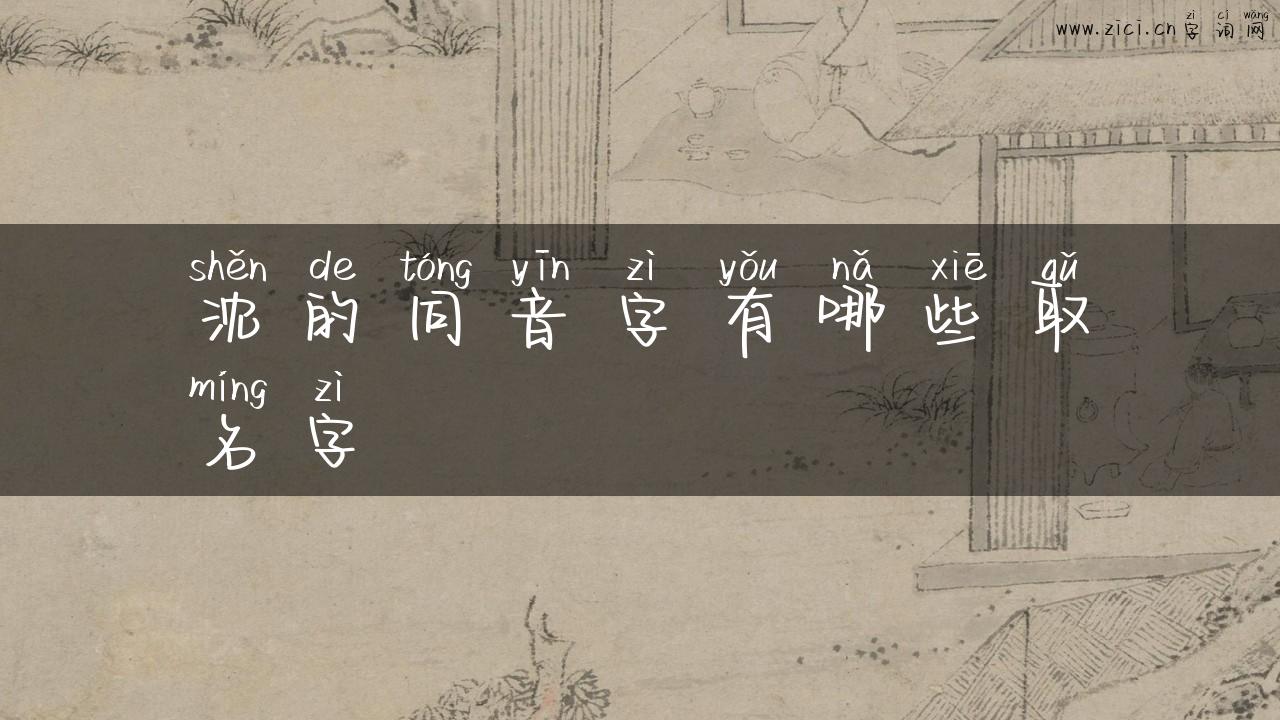 zì cí wǎng
www.zici.cn 字 词 网
shěn de tóng yīn zì yǒu nǎ xiē qǔ
沈 的 同 音 字 有 哪 些 取
míng zì
名 字